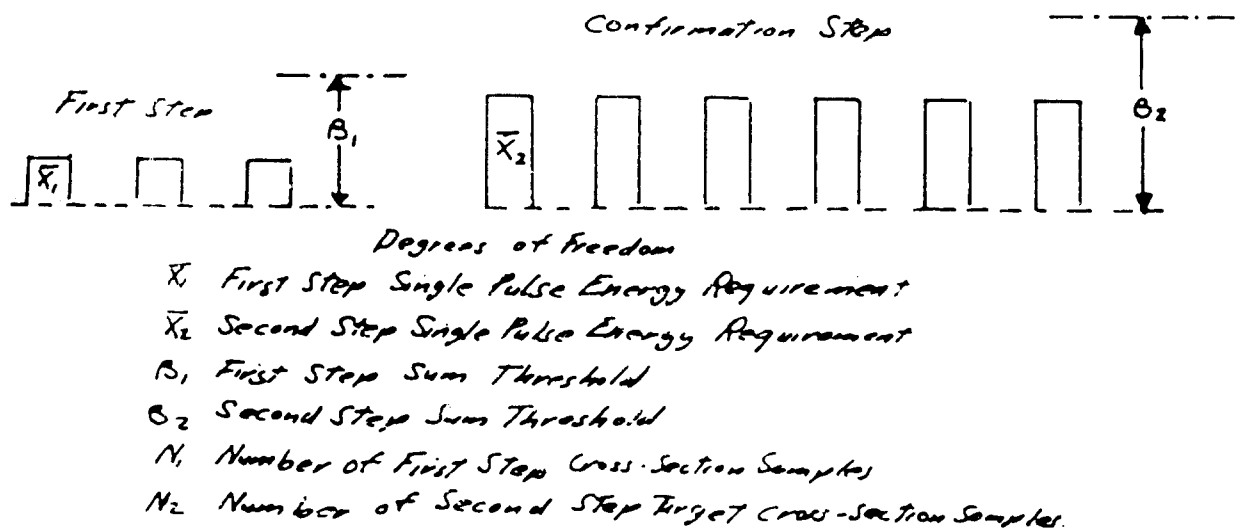 Confirmation Step
First Step
B₁
B₂
X̄₁
X̄₂
Degrees of Freedom
X̄₁ First Step Single Pulse Energy Requirement
X̄₂ Second Step Single Pulse Energy Requirement
B₁ First Step Sum Threshold
B₂ Second Step Sum Threshold
N₁ Number of First Step Cross-Section Samples
N₂ Number of Second Step Target Cross-Section Samples.